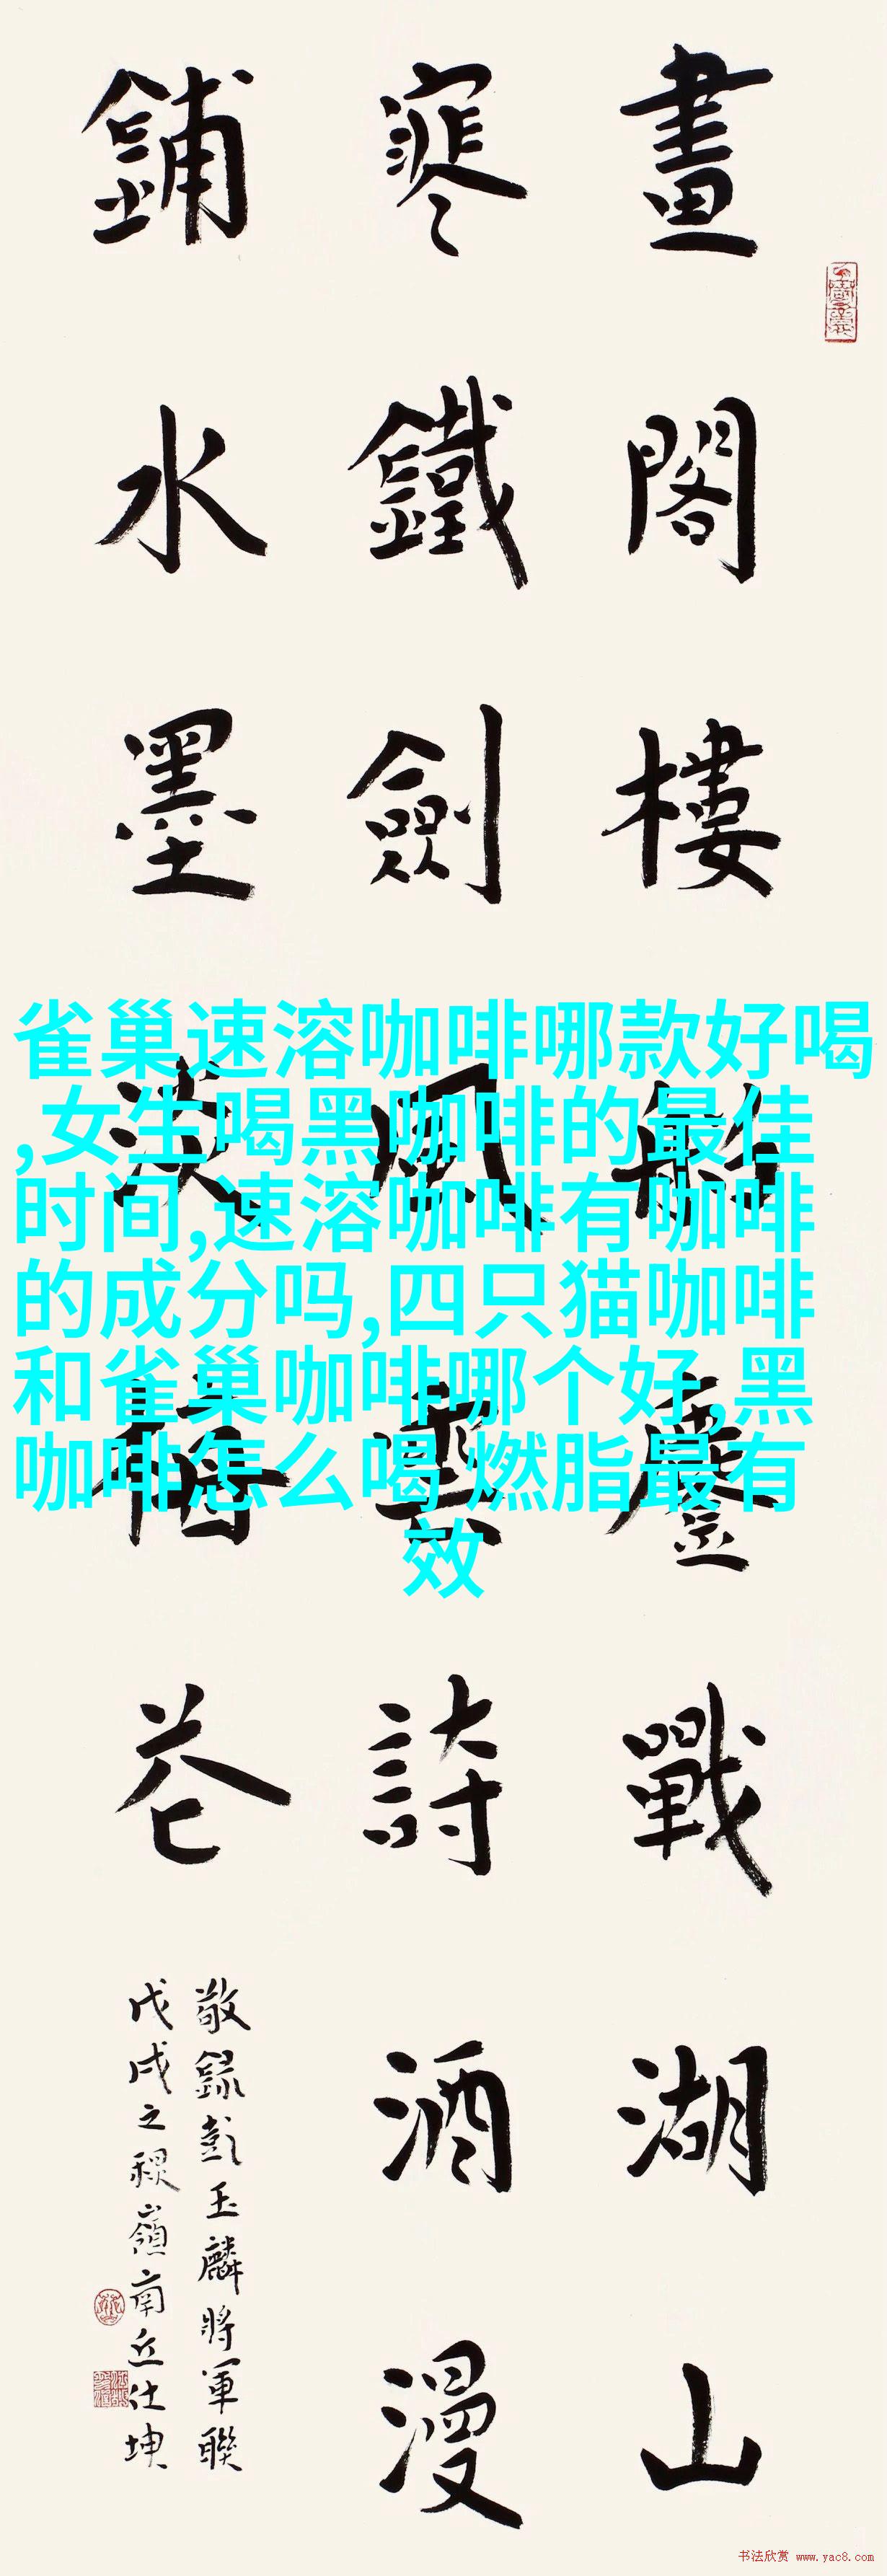 畫閣樓船鏖戰湖山
寒鐵劍風雲詩酒漫
鋪水墨淡梅花
敬錄彭玉麟將軍聯
戊戌之穐嶺南丘仕坤
雀巢速溶咖啡哪款好喝
,女生喝黑咖啡的最佳
时间,速溶咖啡有咖啡
的成分吗,四只猫咖啡
和雀巢咖啡哪个好,黑
咖啡怎么喝 燃脂最有
效
书法欣赏 www.yac8.com